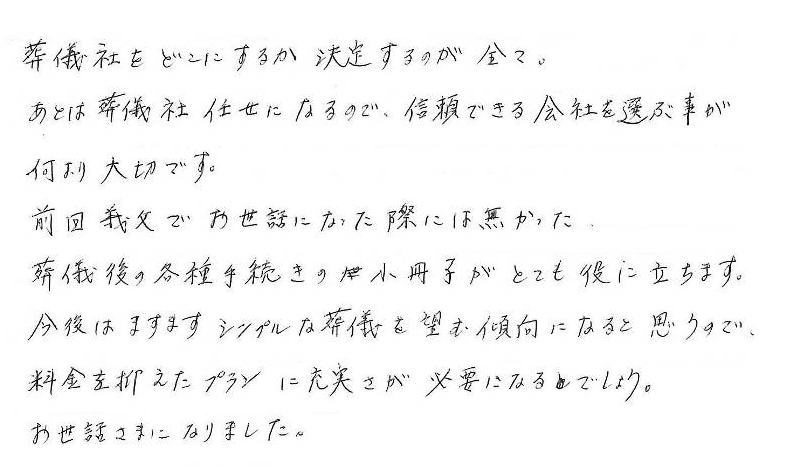 葬儀社をどこにするか決定するのが全て。
あとは葬儀社任せになるので、信頼できる会社を選ぶ事が
何より大切です。
前回義父でお世話になった際には無かった、
葬儀後の各種手続きの小冊子がとても役に立ちます。
今後はますますシンプルな葬儀を望む傾向になると思うので、
料金を抑えたプランに充実さが必要になるでしょう。
お世話さまになりました。